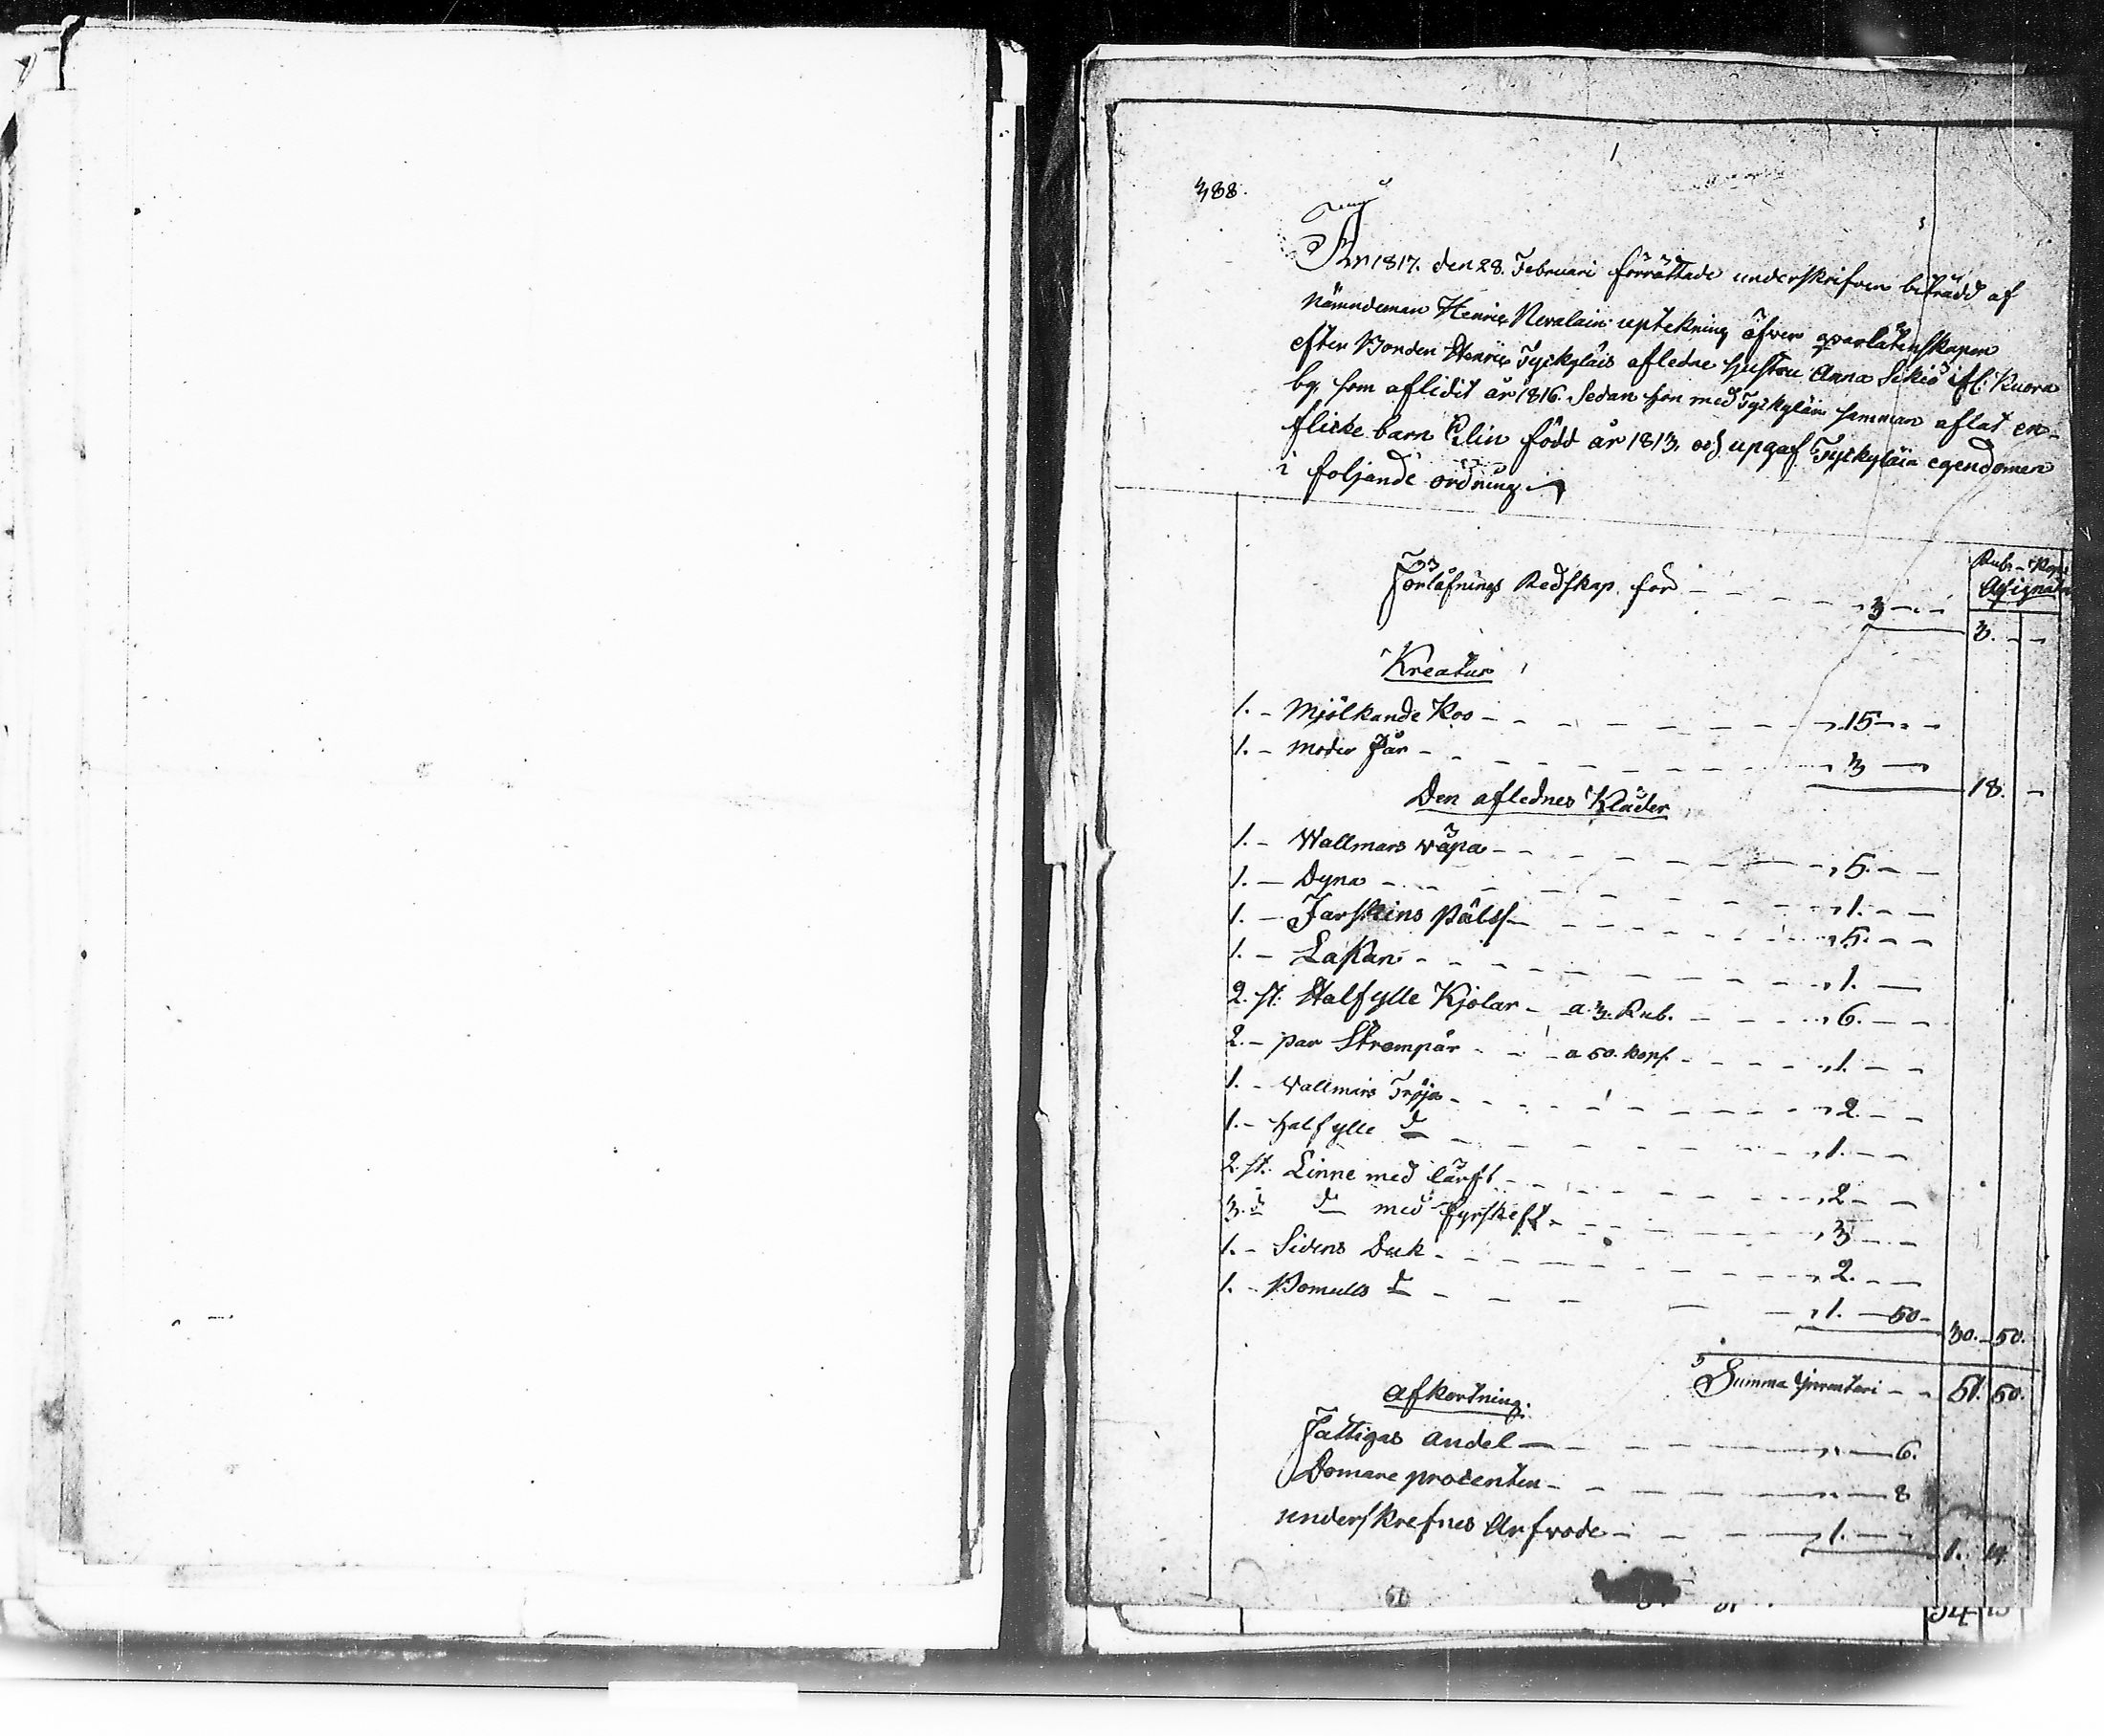 1
388.
År 1817. den 28. Februari förrättade underskrifven biträdd af
Nämndeman Henric Nevalain uptekning öfver qvarlåtenskapen
efter Bonden Henric Tyrkyläis afledne hustru Anna Sikiö ifl: Kuora
by, som aflidit år 1816. Sedan hon med Tyrkyläin samman aflat en
flicke barn Elin född år 1813. och upgaf Tyrkyläin egendomen
i foljande ordning.
Rub. - Kop:
Förlåfnings Redskap för - - - 3 - -
3. - -
Kreatur
1. - Mjölkande Koo - - - 15 - -
1. - moder får - - - 3 - 18. -
Den aflednes Kläder
1. - Wallmars våpa - - - 5. - -
1. - Dyna - - - 1. - -
1. - Farskins Päls - - - 5. - -
1. - Lakan - - - 1. -
2. st. Halfylle Kjolar - a 3. Rub. - - - 6. - -
2. - par Strompår - - a 50. kop. - - - 1. - -
1. - Vallmars Tröja - - - 2. - -
1. - halfylle d - - - 1. - -
2. st. Linne med lärft - - - 2 - -
3. d d med fyrskeft - - - 3 - -
1. - Sidens Duk - - - 2. - -
1. - Bomulls d - - - 1. - 50 - 30. - 50.
Summa - - 51. 50.
afkortning.
Fattigas andel - - - 6.
Domare procenten - - - 8
underskrefnes Arfvode - - - 1. - - 1. 14